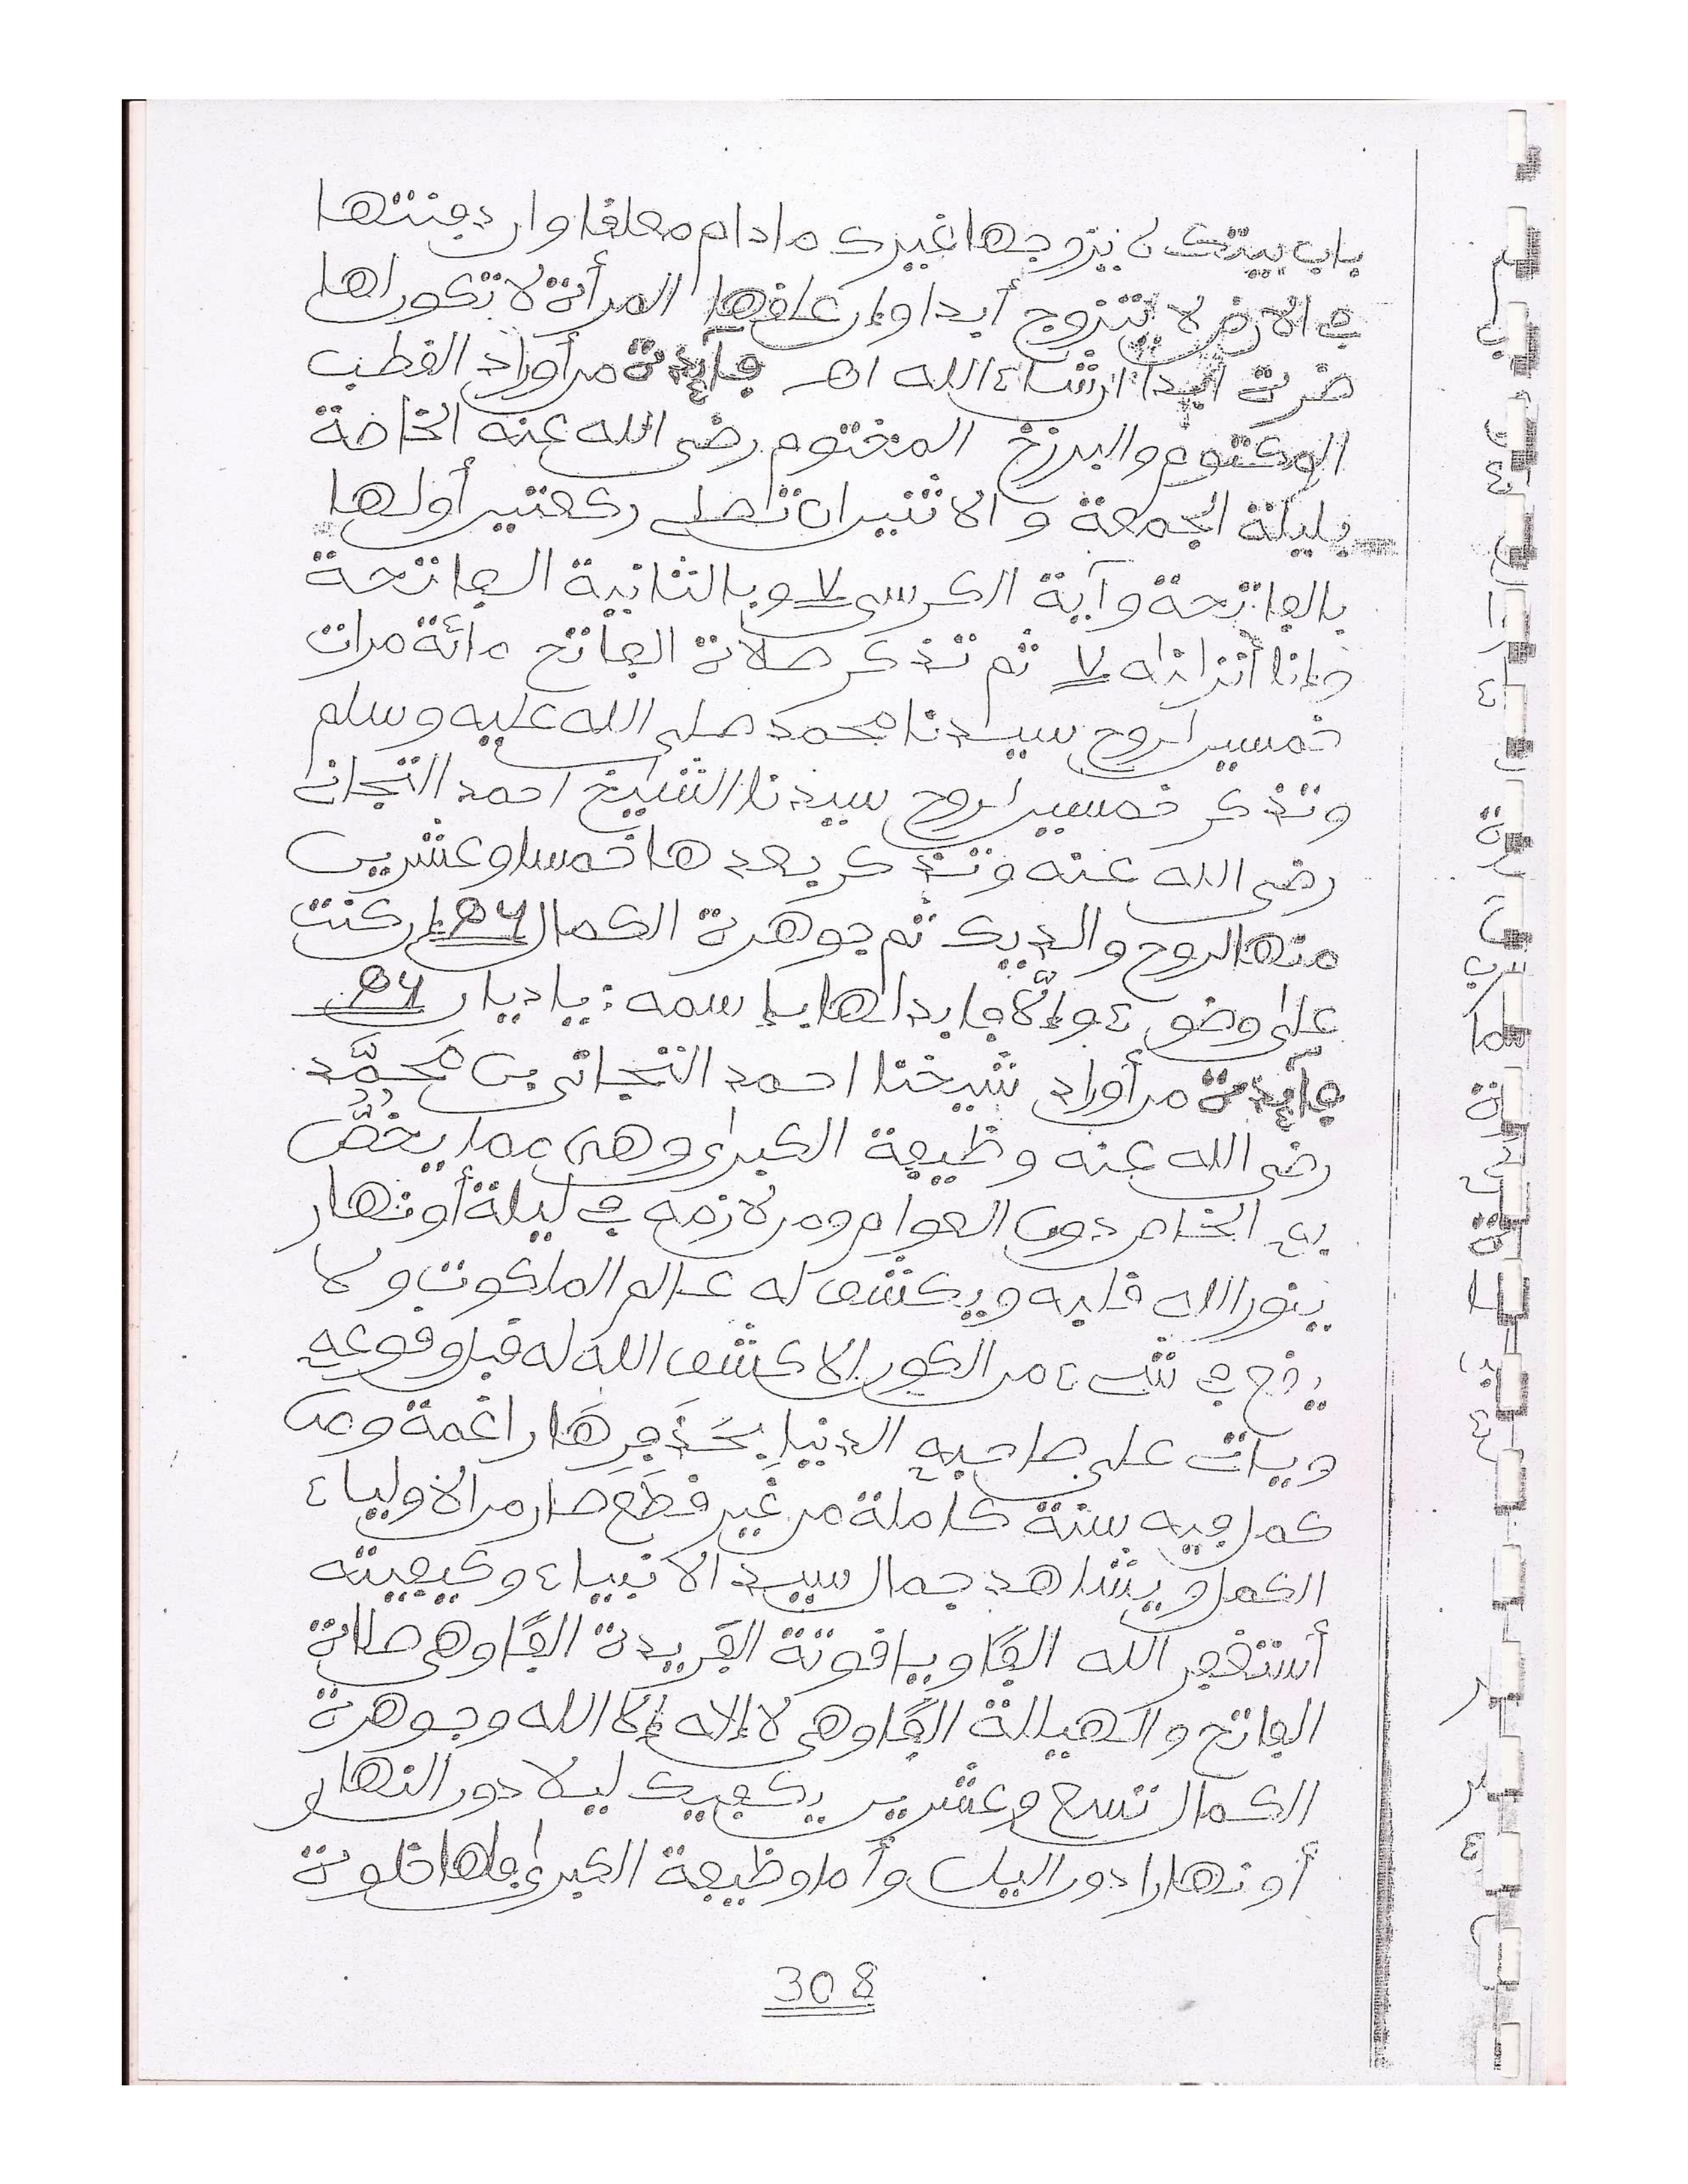 باب بيتك لا يتزوجها غيرك مادام معلقا وان دفنتها
في الارض لا تتزوج أبدا وإن علقها المرأة لا تكون لها
ضرة أبدا ان شاء الله اهـ فآئدة من أوراد القطب
المكتوم والبرزخ المختوم رضي الله عنه الخاصة
بليلة الجمعة والاثنين ان تصلي ركعتين أولها
بالفاتحة وآية الكرسي ٧ وبالثانية الفاتحة
وإنا أنزلناه ٧ ثم تذكر صلاة الفاتح مائة مرات
خمسين لروح سيدنا محمد صلى الله عليه وسلم
وتذكر خمسين لروح سيدنا الشيخ احمد التجاني
رضي الله عنه وتذكر بعدها خمسا وعشرين
منها لروح والديك ثم جوهرة الكمال إن كنت
على وضوء وإلّا فابدلها بإسمه: يا ديان
فآئدة من أوراد شيخنا احمد التجاني بن مُحمَّد
رضي الله عنه وظيفة الكبرى وهي مما يخصُّ
به الخاص دون العوام ومن لازمه في ليلة أو نهار
ينور الله قلبه ويكشف له عالم الملكوت ولا
يقع في شيء من الكون إلا كشف الله له قبل وقوعه
ويأت على صاحبه الدنيا بحَذَفِرِهَا راغمة ومن
كمل فيه سنة كاملة من غير قطع صار من الاولياء
الكمل ويشاهد جمال سيد الانبياء وكيفيته
أستغفر الله الفًا وياقوتة الفريدة الفًا وهي صلاة
الفاتح والهيللة الفًا وهي لا إلاه إلا الله وجوهرة
الكمال تسع وعشرين يكفيك ليلا دون النهار
أو نهارا دون اليل وأما وظيفة الكبرى فلها خلوة
308